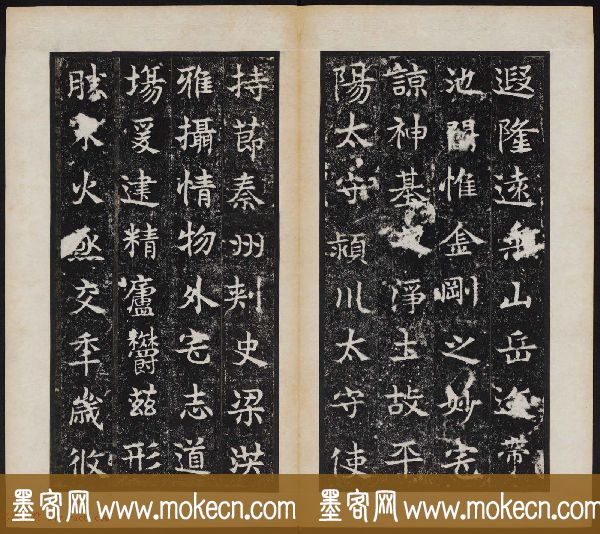 遐隆遠山岳帶
池閣惟金剛之妙宅
諒神基淨土故平
陽太守潁川太守使
持節秦州刾史梁洪
雅攝情物外宅志道
場爰建精廬欝茲形
勝火烝交秊歲攸
墨客网 www.mokecn.com 墨客网 www.mokecn.com